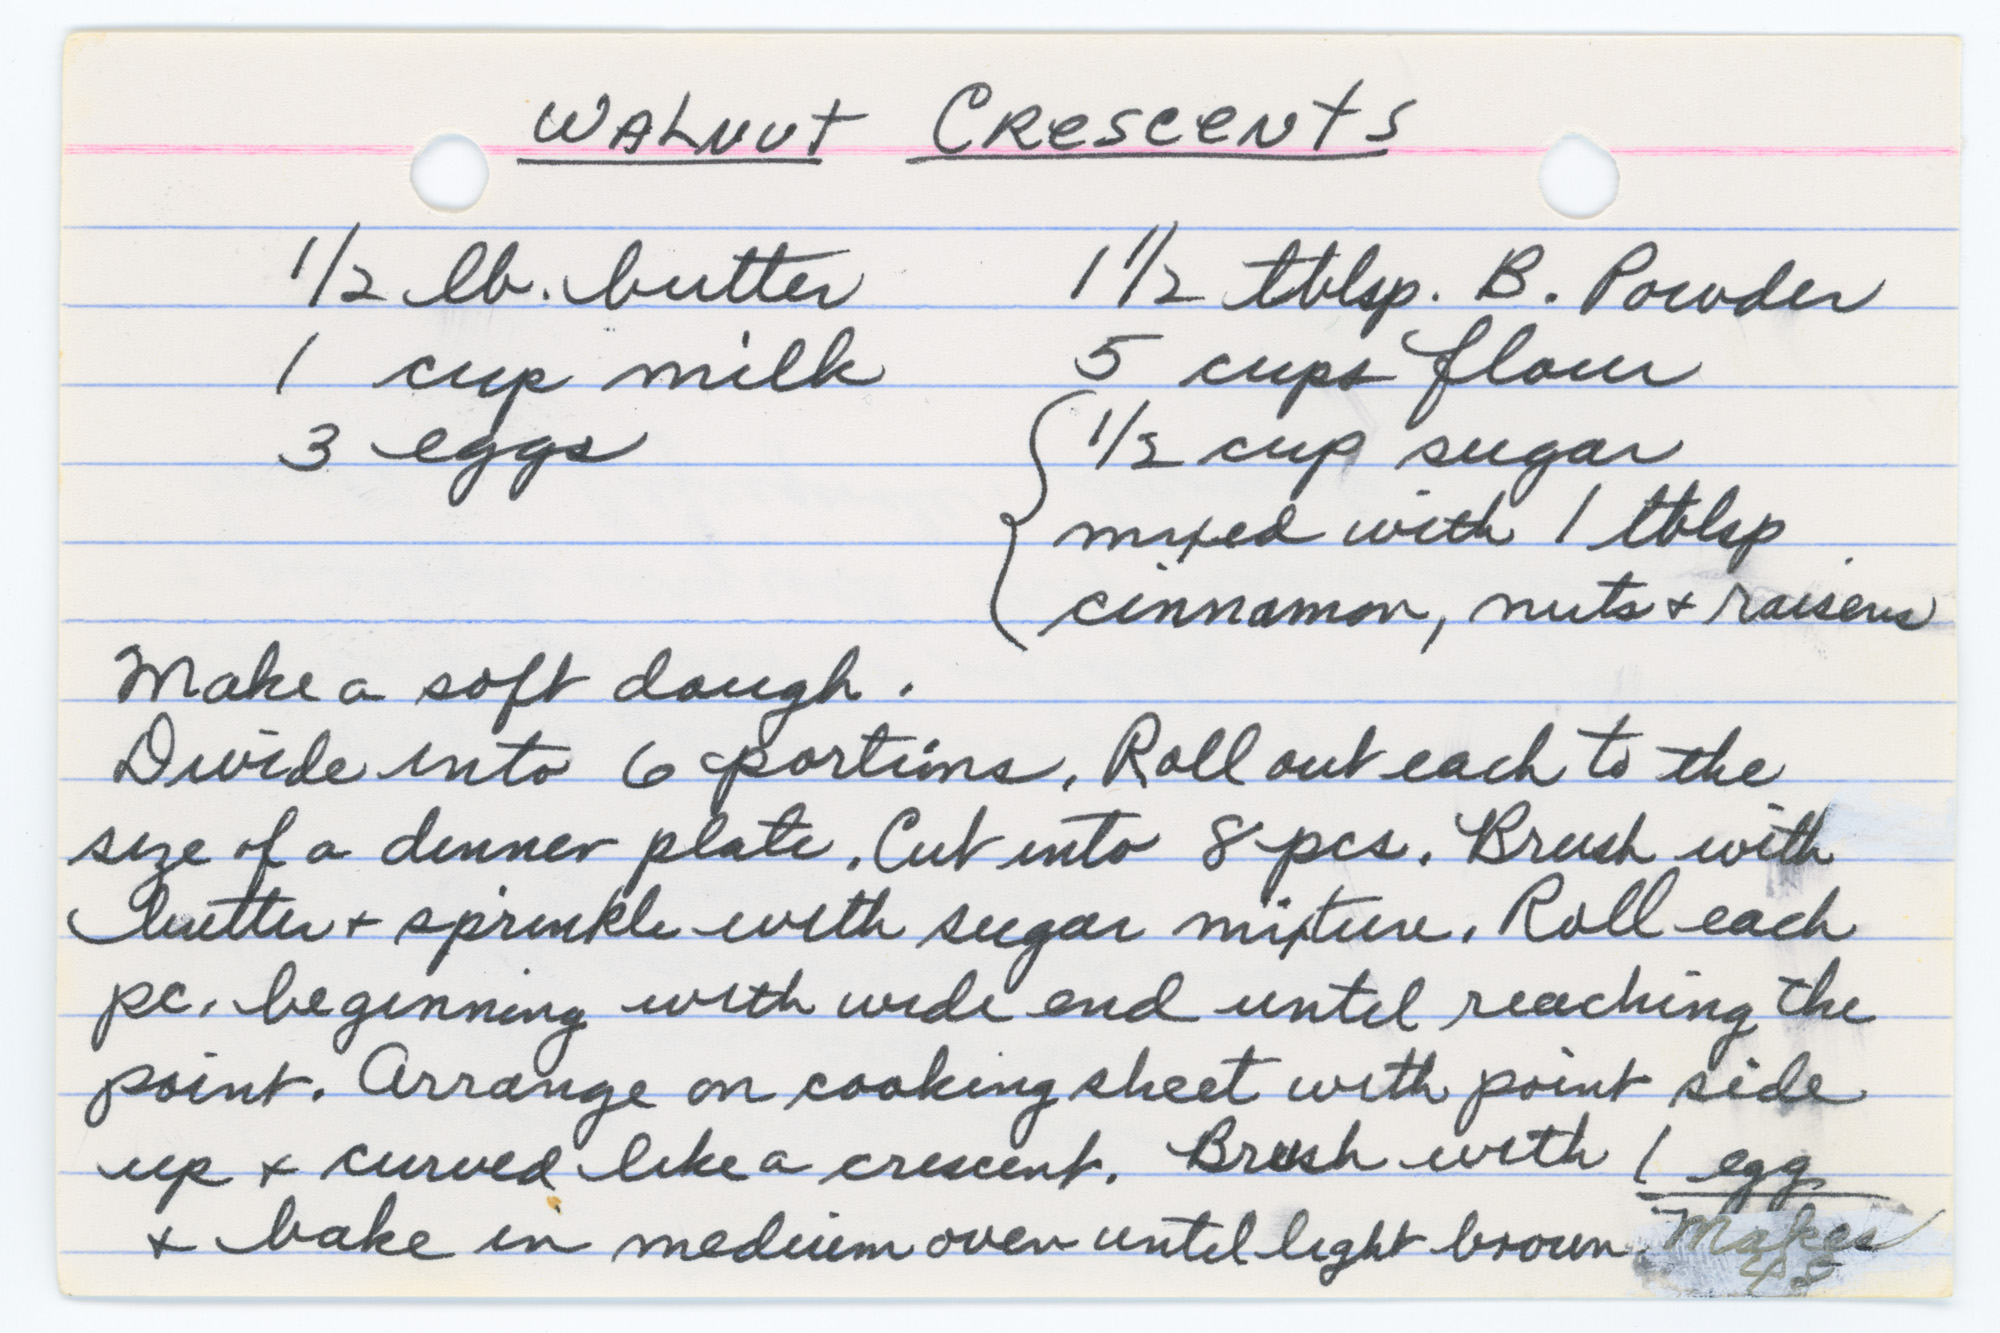 WALNUT CRESCENTS
1/2 lb. butter
1 cup milk
3 eggs
1 1/2 tblsp. B. Powder
5 cups flour
1/2 cup sugar
mixed with 1 tblsp
cinnamon, nuts + raisens
Make a soft dough.
Divide into 6 portions. Roll out each to the
size of a dinner plate. Cut into 8 pcs. Brush with
butter + sprinkle with sugar mixture. Roll each
pc. beginning with wide end until reaching the
point. Arrange on cooking sheet with point side
up + curved like a crescent. Brush with 1 egg
+ bake in medium oven until light brown. Makes